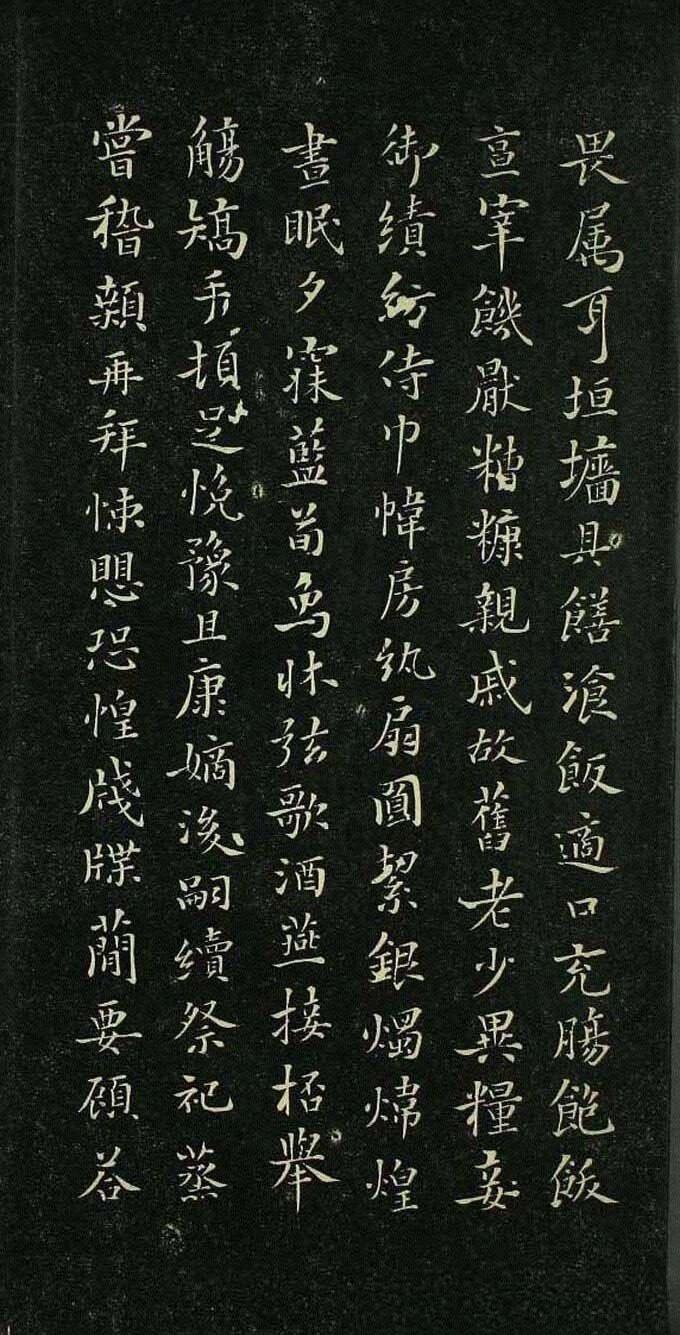 畏属耳垣墻具饍湌飯適口充腸飽飯
亯宰饑厭糟糠親戚故舊老少異糧妾
御績紡侍巾幃房紈扇圓絜銀燭煒煌
晝眠夕寐藍荀象牀弦歌酒燕接柸舉
觴矯手頓足悅豫且康嫡後嗣續祭祀蒸
嘗稽顙再拜悚懼恐惶牋牒蕑要顧荅